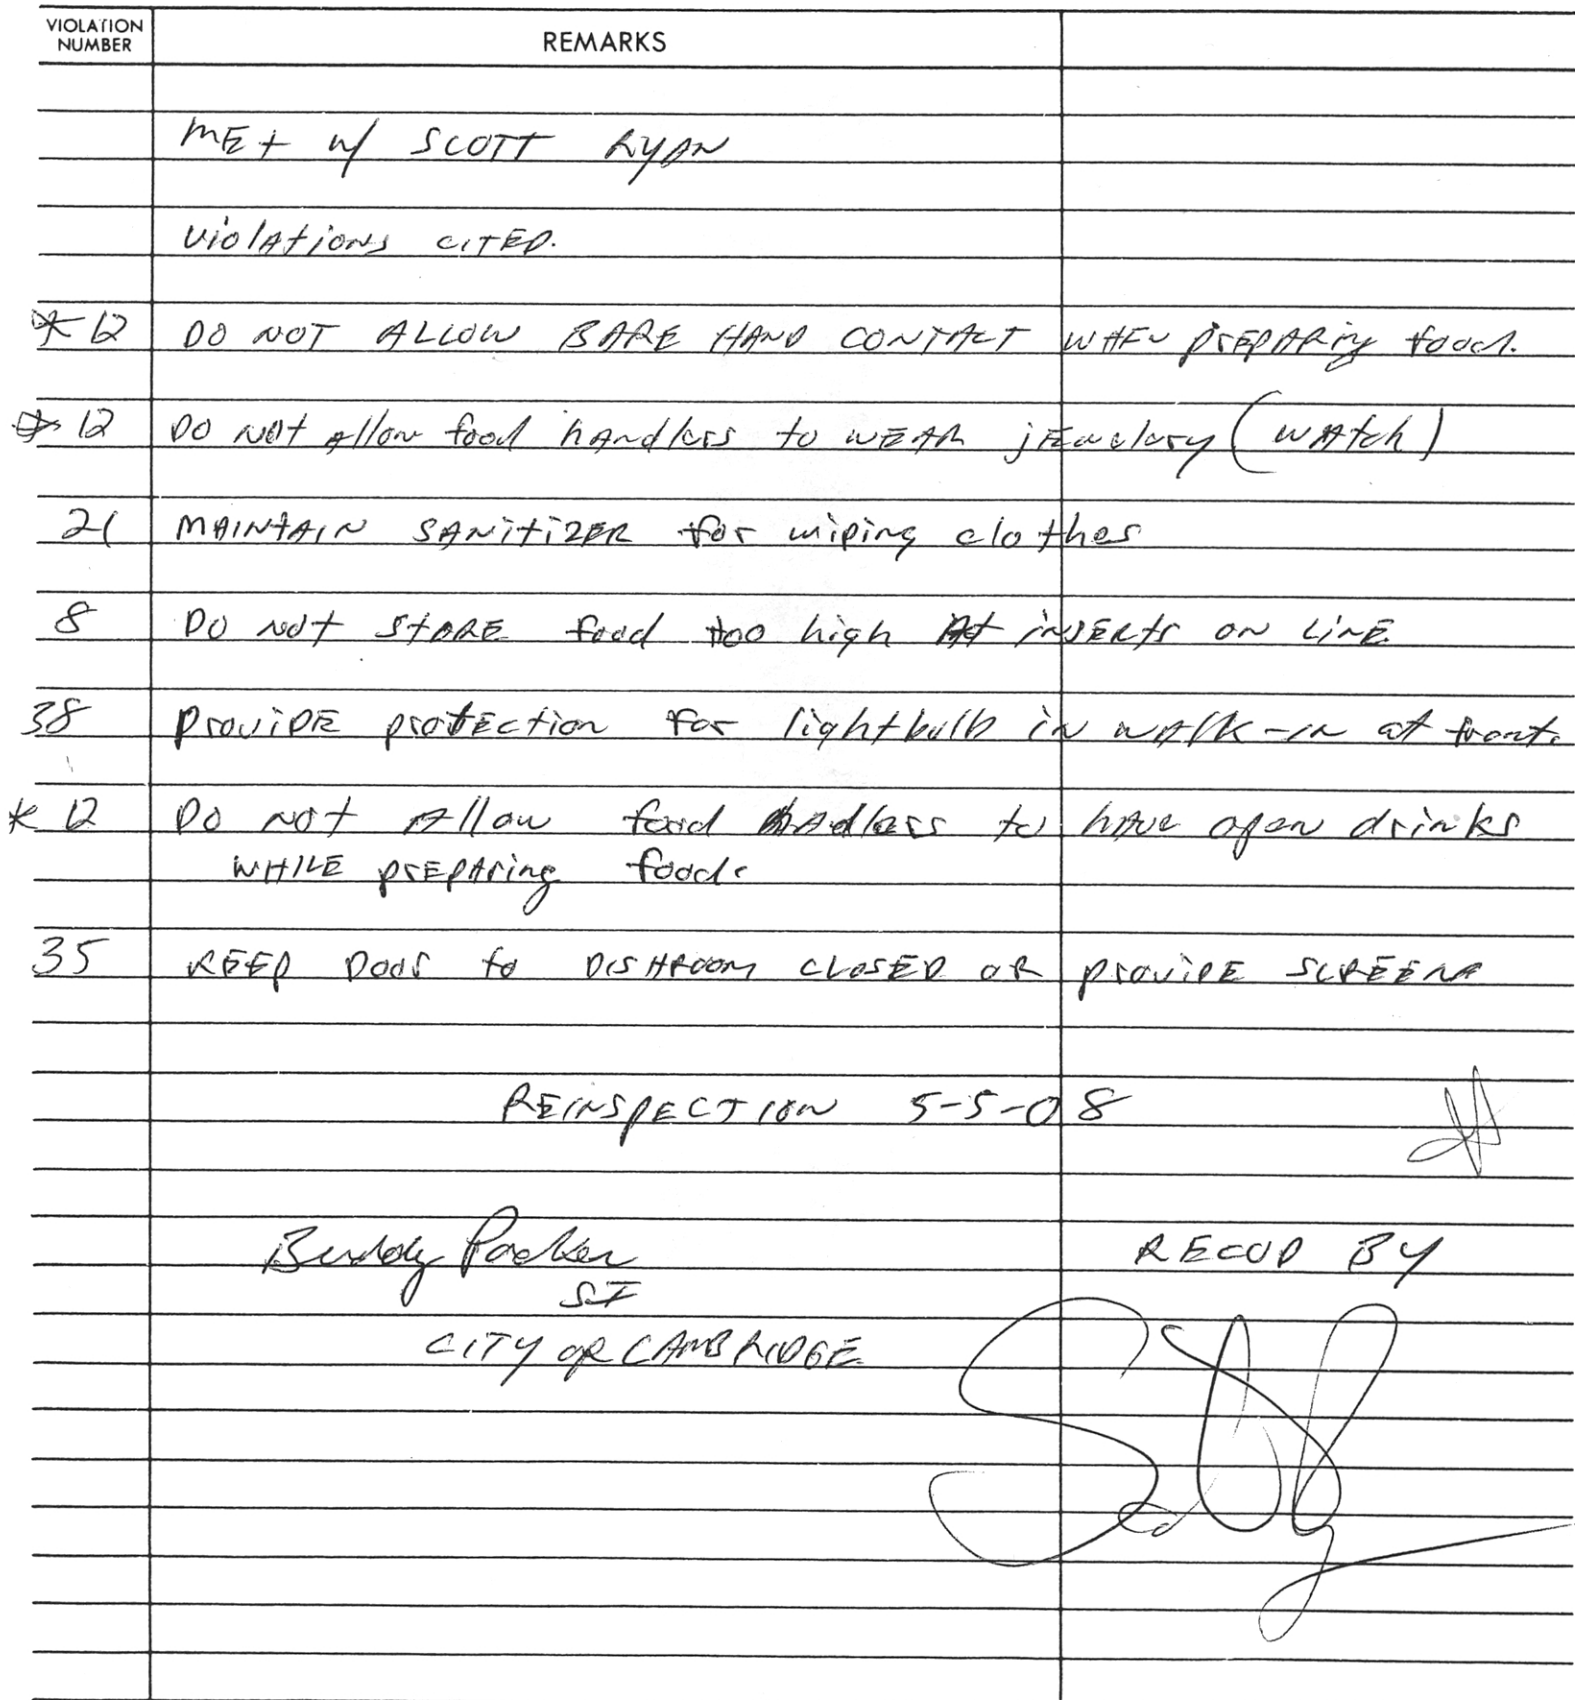 VIOLATION NUMBER REMARKS
MEt w/ SCOTT RYAN
ViolAtions CITED.
* 12 DO NOT ALLOW BARE HAND CONTACT WHEN prEPARing food.
* 12 DO NOt Allow food hAndlers to WEAR jEwelery (WAtch)
21 MAINtAIN SANitiZER for wiping clothes
8 DO Not StORE food too high At inSERts on LINE
38 ProviDE protection for lightbulb in WAlk-in at front.
* 12 DO Not Allow food hAdlers to hAve open drinks
WHILE prEpAring food.
35 KEEP Door to DISHROOM CLOSED OR proviDE SCREENS
REINSPECTION 5-5-08
Buddy Packer
SI
CITY OF CAMBRIDGE
RECVD BY